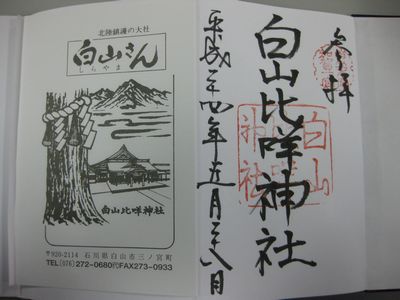 北陸鎮護の大社
白山さん
しらやま
白山比咩神社
〒920-2114 石川県白山市三ノ宮町
TEL(076)272-0680代FAX273-0933
参拝
白山比咩神社
平成二十四年五月二十八日
白山
神社